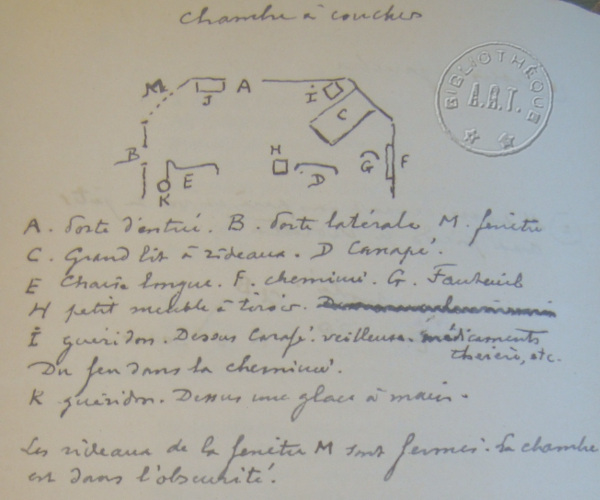 Chambre à coucher
M J A I C
B E K H D G F
A. Porte d'entrée. B. Porte latérale M. fenêtre
C. Grand lit à rideaux. D Canapé.
E Chaise longue. F. cheminée. G. Fauteuil
H petit meuble à tiroir.
I guéridon. Dessus Carafe. veilleuse. médicaments
théière, etc.
Du feu dans la cheminée.
K guéridon. Dessus une glace à main.
Les rideaux de la fenêtre M sont fermés. La chambre
est dans l'obscurité.
BIBLIOTHÈQUE
A.R.T.